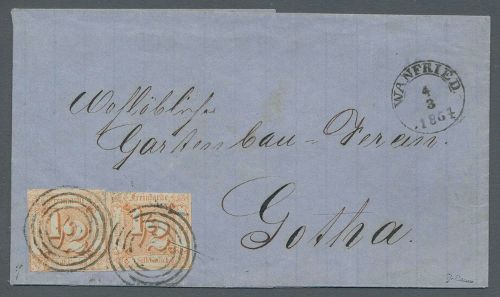 WANFRIED
4
3
1864
Wohllöbliche
Gartenbau-Verein
Gotha.
1/2 1/2